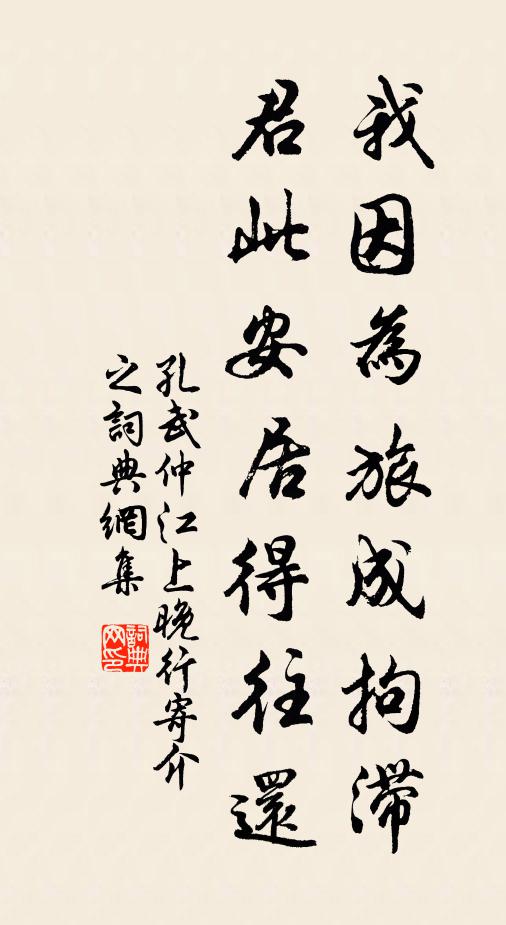 我因為旅成拘滯
君此安居得往還
孔武仲江上晚行寄介
之詞典網集
詞典網印